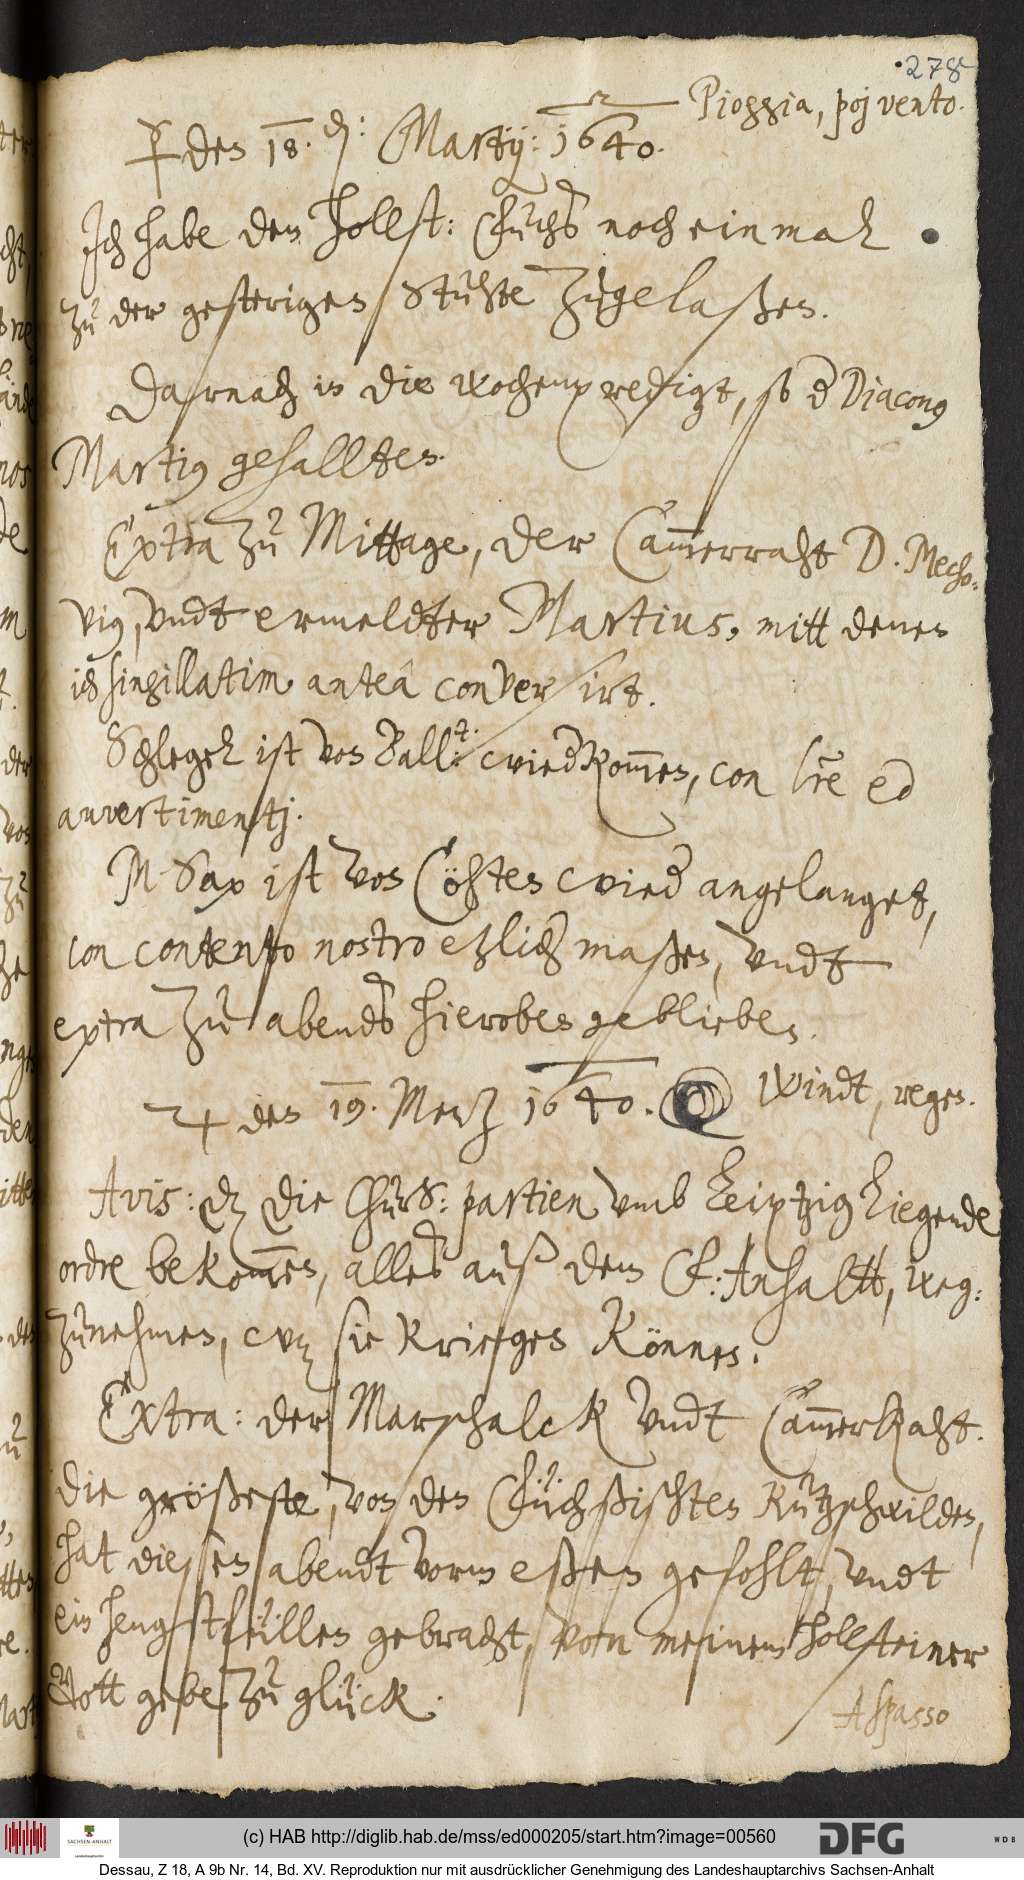 278
Pioggia, poj vento.
☿ den 18. d: Martij: 1640.
Ich habe den hollst: Fuchß noch einmal
zu der gesterigen Stuhte zugelaßen.
Darnach in die wochenpredigt, so d Diacong
Martig gehalltten.
Extra zu Mittage, der Cammerraht D. Mecho-
vig, vndt ermeldter Martius, mitt denen
ich singillatim anteâ conversirt.
Schlegel ist von Ball:t. wied kommen, con lre ed
auvertimentj.
M. Sax ist von Cöhten wied angelanget,
con contento nostro etzlich maßen, vndt
extra zu abends hieroben geblieben.
♃ den 19. Mertz 1640. Windt, regen.
Avis: dz die ChurS: partien vmb Leiptzig liegende
ordre bekommen, alles auß dem F: Anhaltt, weg-
zunehmen, waz sie kriegen können.
Extra: der Marschalck vndt CammerRaht.
Die größeste, von den Füchßischten Kutzschwilden,
hat diesen abendt vorm eßen gefohlt, vndt
ein hengstfüllen gebracht, vom meinem hollsteiner
Gott gebe zu glück.
A spasso
(c) HAB http://diglib.hab.de/mss/ed000205/start.htm?image=00560
SACHSEN-ANHALT
DFG
WDB
Dessau, Z 18, A 9b Nr. 14, Bd. XV. Reproduktion nur mit ausdrücklicher Genehmigung des Landeshauptarchivs Sachsen-Anhalt